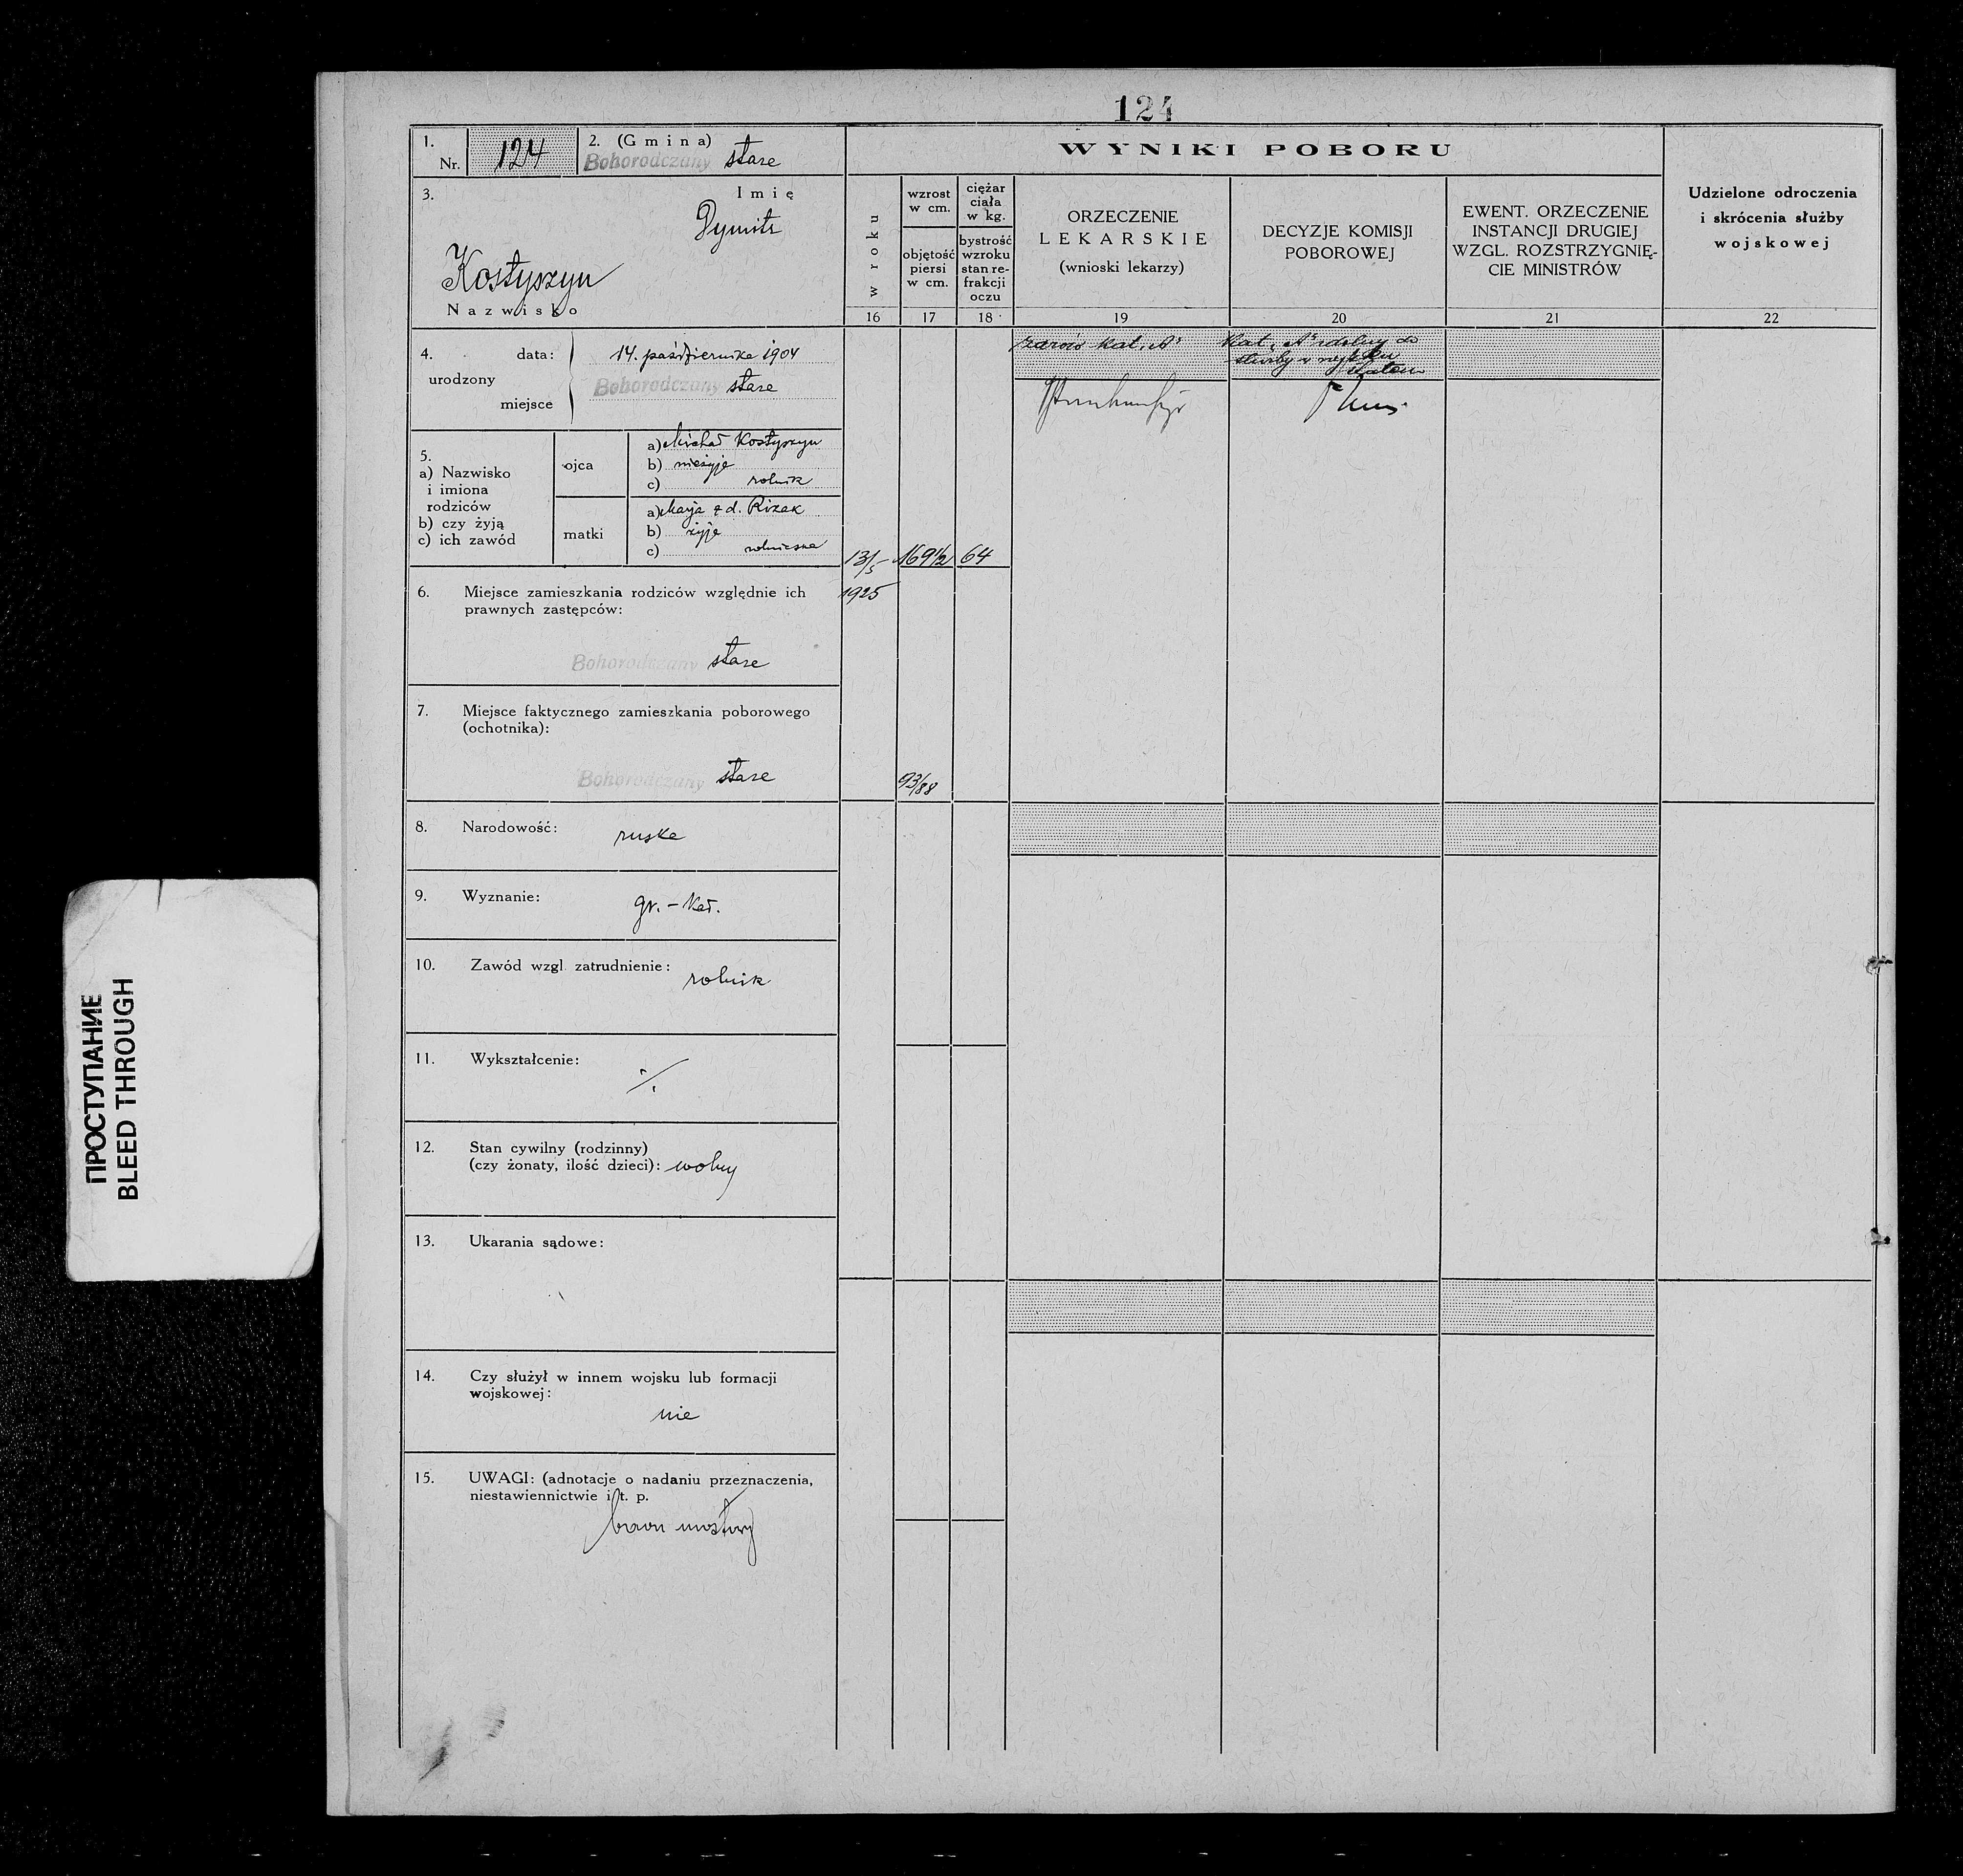 124
1.
Nr. 124
2. (Gmina)
Bohorodczany stare
3.
Imię
Dymitr
Kostyszyn
Nazwisko
4.
urodzony
data: 14. października 1904
miejsce
Bohorodczany stare
5.
a) Nazwisko
i imiona
rodziców
b) czy żyją
c) ich zawód
ojca
a) Michał Kostyszyn
b) nieżyje
c) rolnik
matki
a) Marja z d. Rizak
b) żyje
c) rolniczka
6. Miejsce zamieszkania rodziców względnie ich
prawnych zastępców:
Bohorodczany stare
7. Miejsce faktycznego zamieszkania poborowego
(ochotnika):
Bohorodczany stare
8. Narodowość: ruska
9. Wyznanie: gr.-kat.
10. Zawód wzgl. zatrudnienie: rolnik
11. Wykształcenie:
·/.
12. Stan cywilny (rodzinny)
(czy żonaty, ilość dzieci): wolny
13. Ukarania sądowe:
14. Czy służył w innem wojsku lub formacji
wojskowej:
nie
15. UWAGI: (adnotacje o nadaniu przeznaczenia,
niestawiennictwie i t. p.
WYNIKI POBORU
w roku
16
wzrost
w cm.
objętość
piersi
w cm.
17
ciężar
ciała
w kg.
bystrość
wzroku
stan re-
frakcji
oczu
18
ORZECZENIE
LEKARSKIE
(wnioski lekarzy)
19
DECYZJE KOMISJI
POBOROWEJ
20
EWENT. ORZECZENIE
INSTANCJI DRUGIEJ
WZGL. ROZSTRZYGNIĘ-
CIE MINISTRÓW
21
Udzielone odroczenia
i skrócenia służby
wojskowej
22
13/5
1925
169 1/2
64
93/88
zdrów kat. "A"
Kat. "A" zdolny do
służby w
ПРОСТУПАНИЕ
BLEED THROUGH